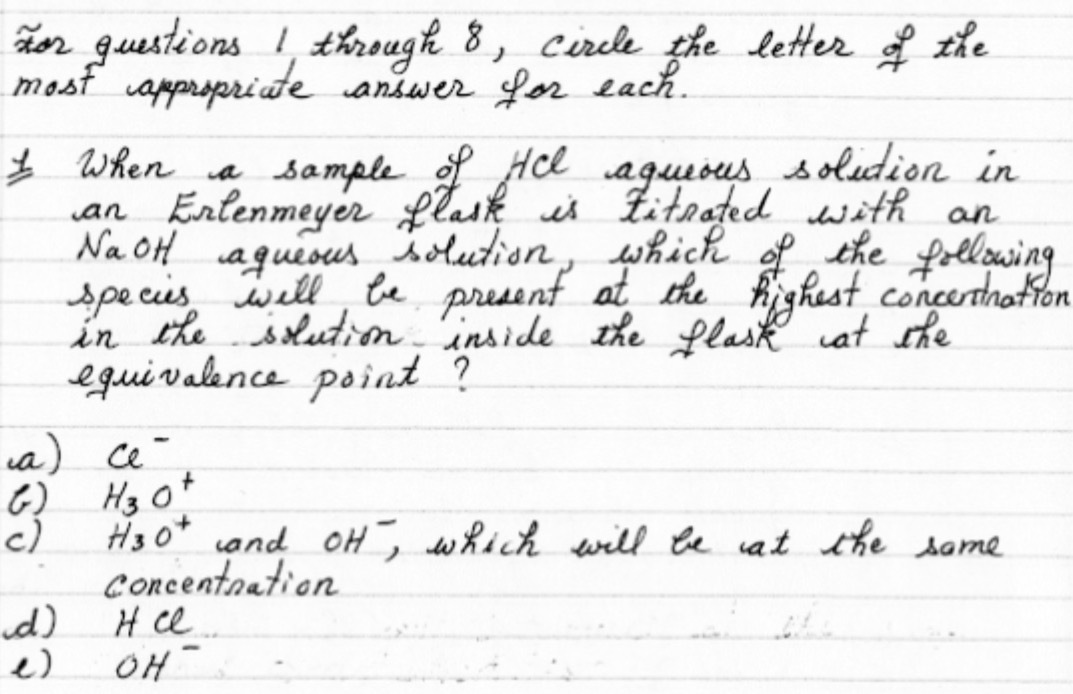 For questions 1 through 8, circle the letter of the
most appropriate answer for each.
1 When a sample of HCl aqueous solution in
an Erlenmeyer flask is titrated with an
NaOH aqueous solution, which of the following
species will be present at the highest concentration
in the solution inside the flask at the
equivalence point ?
a) Cl⁻
b) H₃O⁺
c) H₃O⁺ and OH⁻, which will be at the same
concentration
d) HCl
e) OH⁻